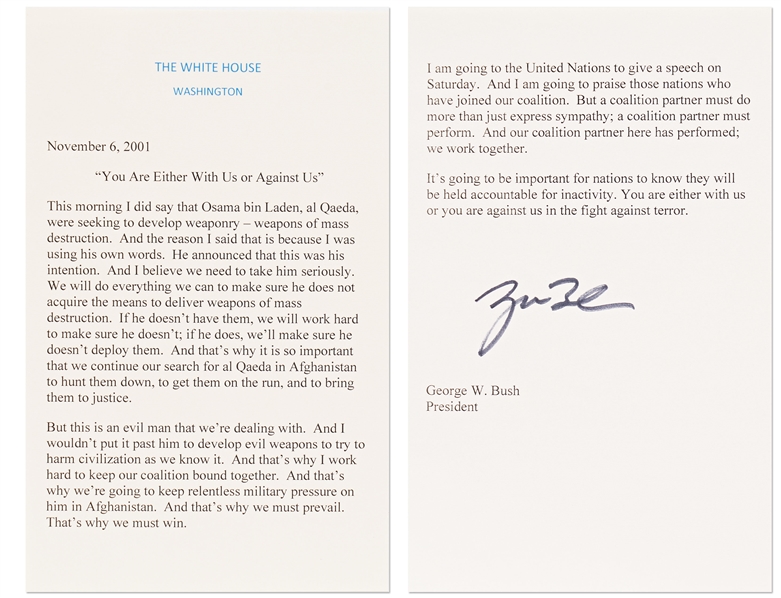 THE WHITE HOUSE
WASHINGTON
November 6, 2001
“You Are Either With Us or Against Us”
This morning I did say that Osama bin Laden, al Qaeda,
were seeking to develop weaponry – weapons of mass
destruction.  And the reason I said that is because I was
using his own words.  He announced that this was his
intention.  And I believe we need to take him seriously.
We will do everything we can to make sure he does not
acquire the means to deliver weapons of mass
destruction.  If he doesn’t have them, we will work hard
to make sure he doesn’t; if he does, we’ll make sure he
doesn’t deploy them.  And that’s why it is so important
that we continue our search for al Qaeda in Afghanistan
to hunt them down, to get them on the run, and to bring
them to justice.
But this is an evil man that we’re dealing with.  And I
wouldn’t put it past him to develop evil weapons to try to
harm civilization as we know it.  And that’s why I work
hard to keep our coalition bound together.  And that’s
why we’re going to keep relentless military pressure on
him in Afghanistan.  And that’s why we must prevail.
That’s why we must win.
I am going to the United Nations to give a speech on
Saturday.  And I am going to praise those nations who
have joined our coalition.  But a coalition partner must do
more than just express sympathy; a coalition partner must
perform.  And our coalition partner here has performed;
we work together.
It’s going to be important for nations to know they will
be held accountable for inactivity. You are either with us
or you are against us in the fight against terror.
George W. Bush
President